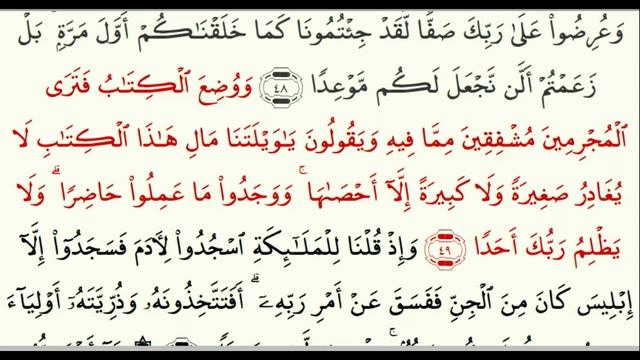 وَعُرِضُوا۟ عَلَىٰ رَبِّكَ صَفًّا لَّقَدْ جِئْتُمُونَا كَمَا خَلَقْنَـٰكُمْ أَوَّلَ مَرَّةٍۭ ۚ بَلْ
زَعَمْتُمْ أَلَّن نَّجْعَلَ لَكُم مَّوْعِدًا ٤٨ وَوُضِعَ ٱلْكِتَـٰبُ فَتَرَى
ٱلْمُجْرِمِينَ مُشْفِقِينَ مِمَّا فِيهِ وَيَقُولُونَ يَـٰوَيْلَتَنَا مَالِ هَـٰذَا ٱلْكِتَـٰبِ لَا
يُغَادِرُ صَغِيرَةً وَلَا كَبِيرَةً إِلَّآ أَحْصَىٰهَا ۚ وَوَجَدُوا۟ مَا عَمِلُوا۟ حَاضِرًا ۗ وَلَا
يَظْلِمُ رَبُّكَ أَحَدًا ٤٩ وَإِذْ قُلْنَا لِلْمَلَـٰٓئِكَةِ ٱسْجُدُوا۟ لِـَٔادَمَ فَسَجَدُوٓا۟ إِلَّآ
إِبْلِيسَ كَانَ مِنَ ٱلْجِنِّ فَفَسَقَ عَنْ أَمْرِ رَبِّهِۦٓ ۗ أَفَتَتَّخِذُونَهُۥ وَذُرِّيَّتَهُۥٓ أَوْلِيَآءَ